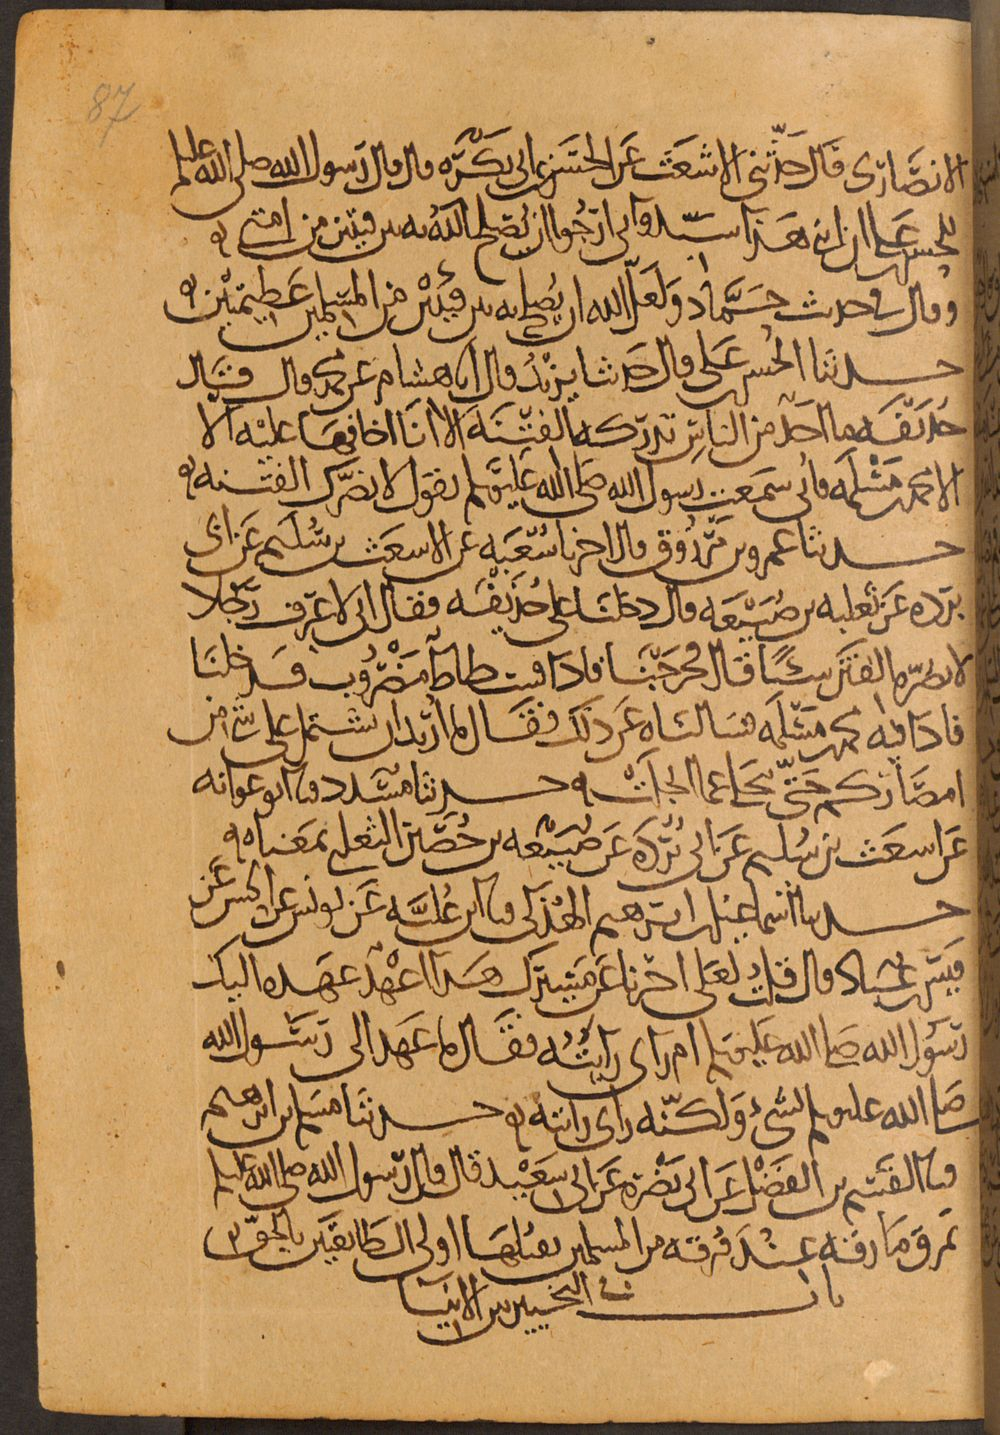 87
الانصاري قال حدثني الاشعث عن الحسن عن ابي بكره قال قال رسول الله صلى الله عليه وسلم
للحسن بن علي ان ابني هذا سيد واني ارجوا ان يصلح الله به بين فئتين من امتي
وقال في حديث حماد ولعل الله ان يصلح به بين فئتين من المسلمين عظيمتين
حدثنا الحسن بن علي قال حدثنا يزيد قال انا هشام عن محمد قال قال
حذيفه ما احد من الناس تدركه الفتنه الا انا اخافها عليه الا
الا محمد بن مسلمه فاني سمعت رسول الله صلى الله عليه وسلم يقول لا تضرك الفتنه
حدثنا عمرو بن مرزوق قال اخبرنا شعبه عن الاشعث بن سليم عن ابي
برده عن ثعلبه بن ضبيعه قال دخلنا على حذيفه فقال اني لاعرف رجلا
لا تضره الفتن شيئا قال فخرجنا فاذا فسطاط مضروب فدخلنا
فاذا فيه محمد بن مسلمه فسالناه عن ذلك فقال ما اريد ان يشتمل علي شي من
امصاركم حتى تنجلي عما انجلت حدثنا مسدد نا ابو عوانه
عن اشعث بن سليم عن ابي برده عن ضبيعه بن حصين الثعلبي بمعناه
حدثنا اسماعيل بن ابرهيم الهذلي نا ابن عليه عن يونس عن الحسن عن
قيس بن عباد قال قلت لعلي اخبرنا عن مسيرك هذا اعهد عهده اليك
رسول الله صلى الله عليه وسلم ام راي رايته فقال ما عهد الي رسول الله
صلى الله عليه وسلم بشيء ولكنه راي رايته حدثنا مسلم بن ابرهيم
نا القسم بن الفضل عن ابي نضره عن ابي سعيد قال قال رسول الله صلى الله عليه وسلم
تمرق مارقه عند فرقه من المسلمين يقتلها اولى الطايفتين بالحق
باب في التخيير بين الانبيا